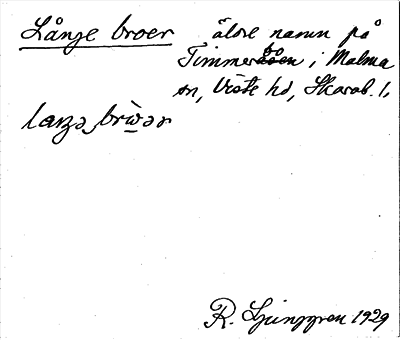 Långe broer äldre namn på
Timmerbåen i Malma
sn, Viste hd, Skarab. l.
laŋə brẁər
R. Ljunggren 1929